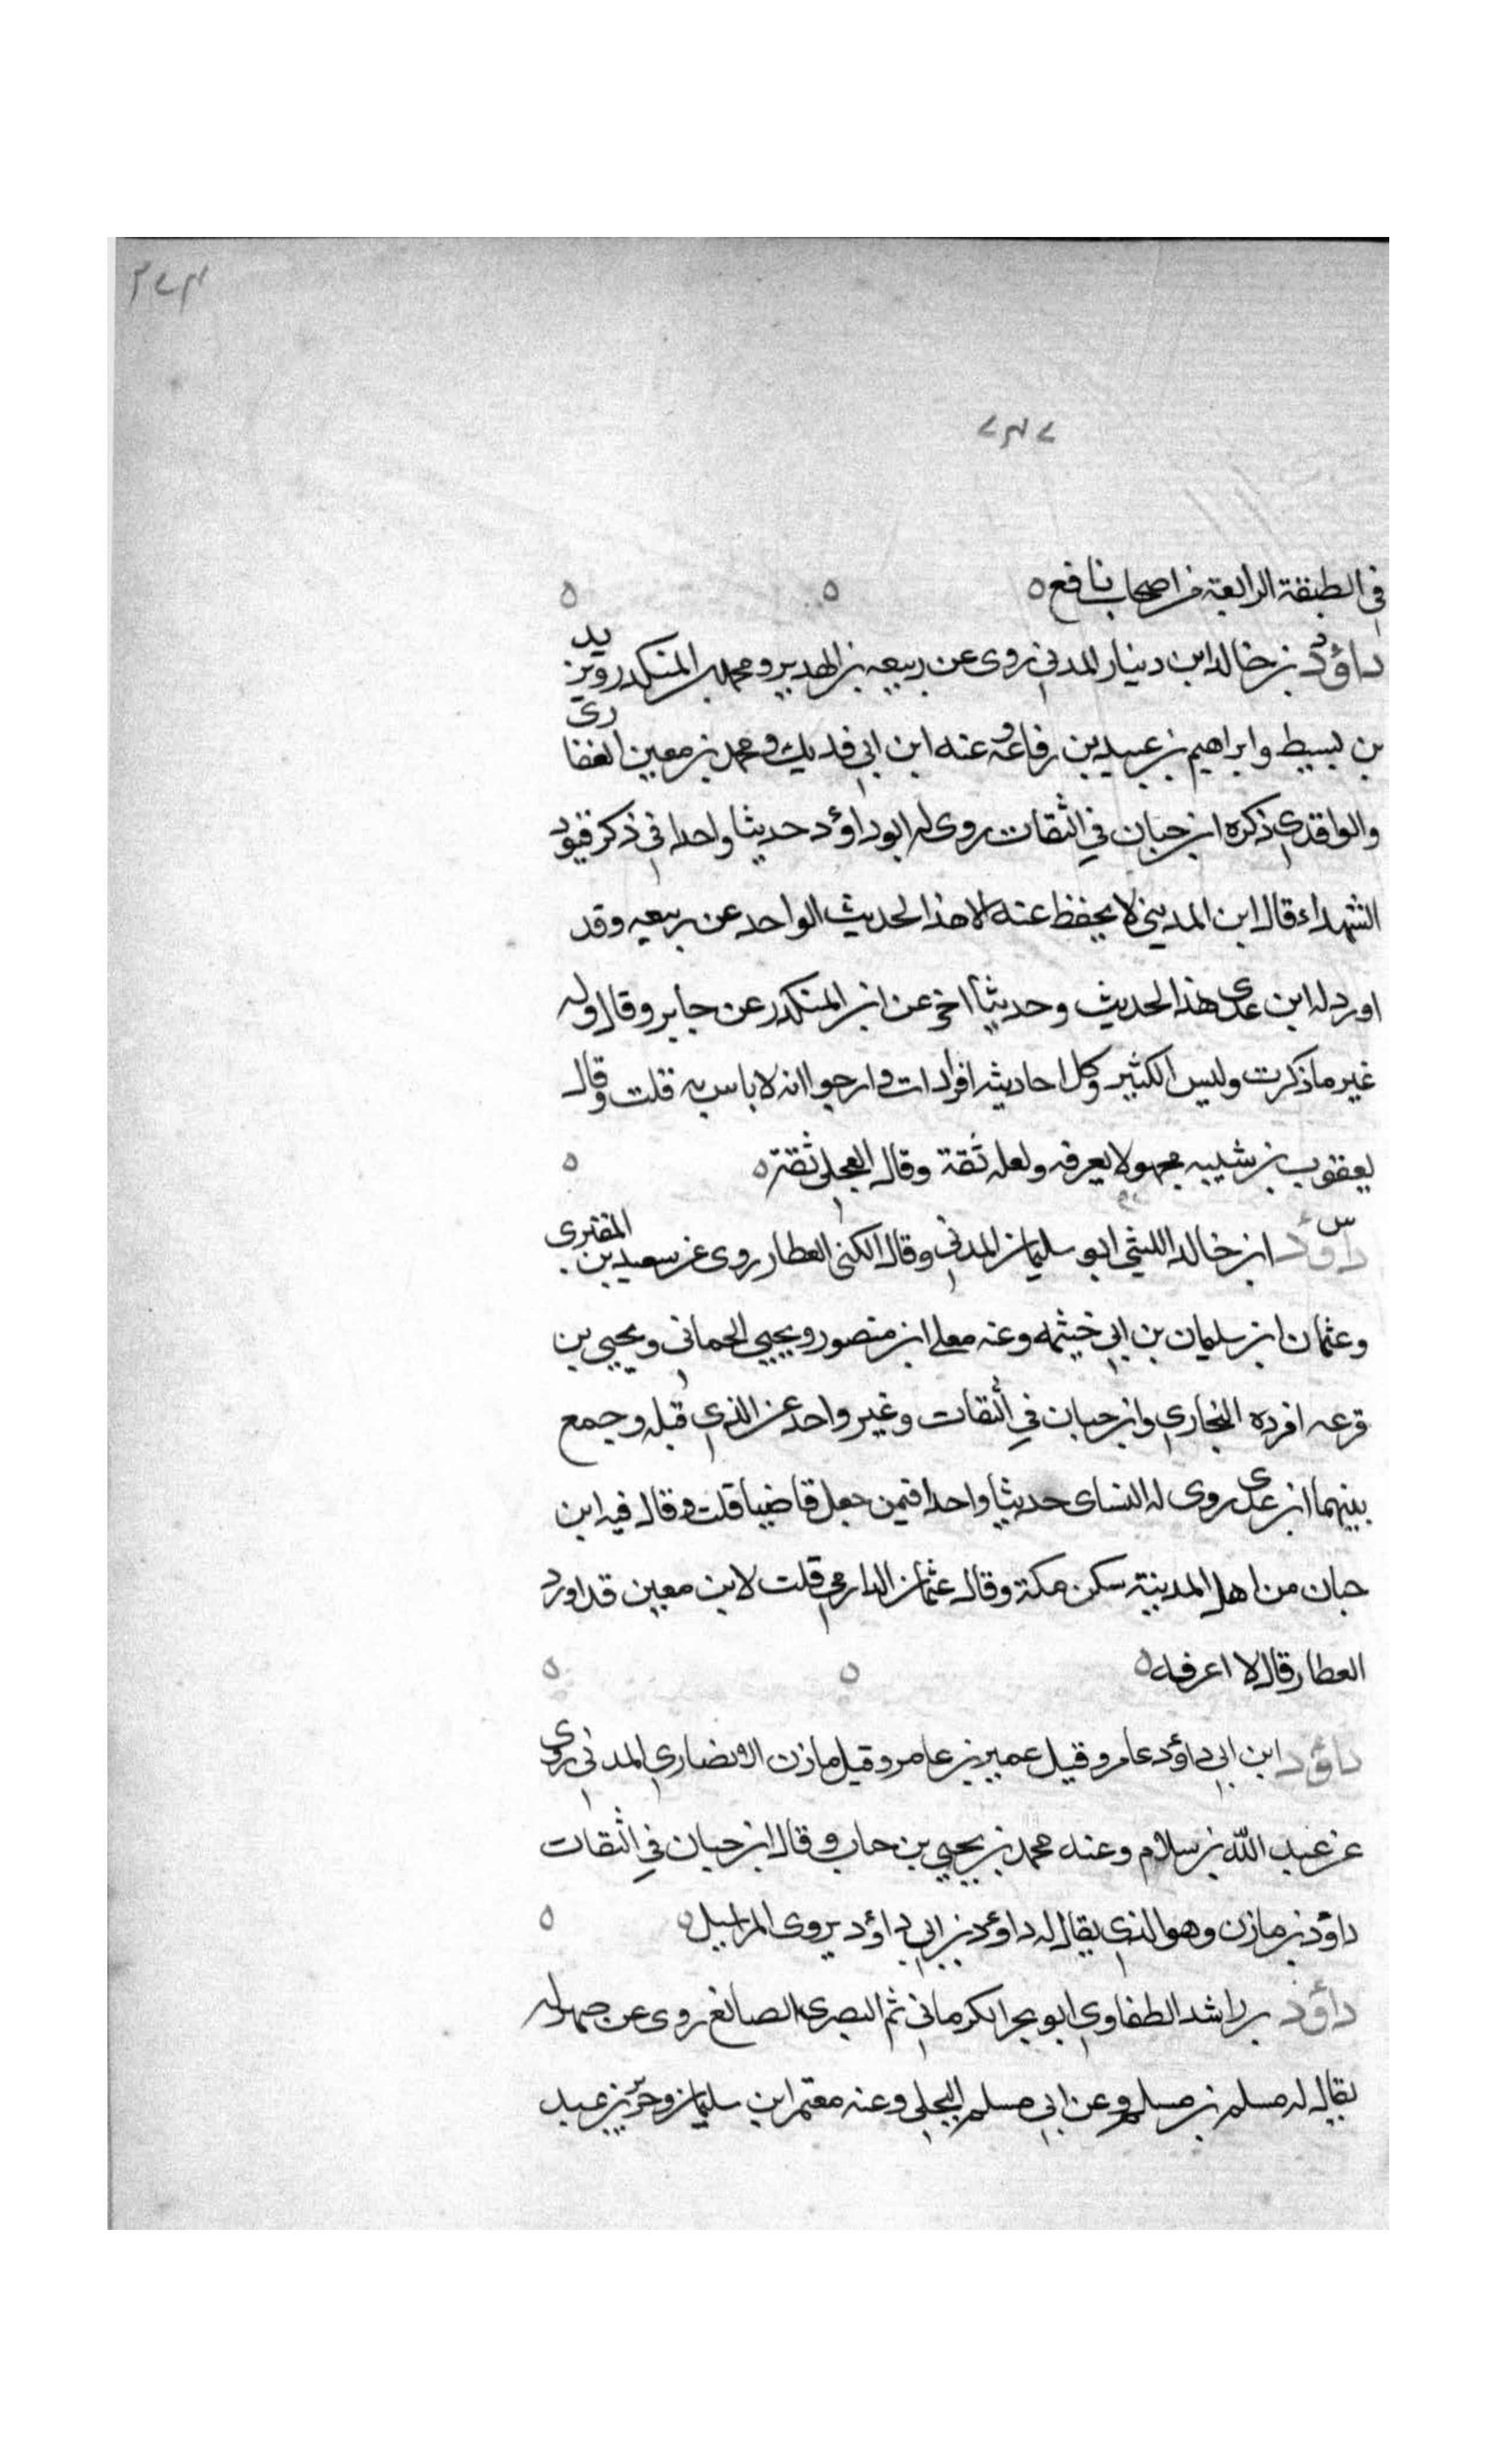 في الطبقة الرابعة من اصحاب نافع ه ه ه
د داؤد بن خالد ابن دينار المدني روى عن ربيعه بن الهدير ومحمد بن المنكدر ويزيد
بن بسيط وابراهيم بن عبيد بن رفاعة وعنه ابن ابي فديك ومحمد بن معين الغفاري
والواقدي ذكره ابن حبان في الثقات روى له ابو داؤد حديثا واحدا في ذكر قبور
الشهداء قال ابن المديني لا يحفظ عنه الا هذا الحديث الواحد عن ربيعه وقد
اورد له ابن عدي هذا الحديث وحديثا اخر عن ابن المنكدر عن جابر وقال وله
غير ما ذكرت وليس الكثير وكل احاديثه افرادات وارجوا انه لا باس به قلت وقال
يعقوب بن شيبه مجهول لا يعرفه ولعله ثقة وقال العجلي ثقة ه ه
س داؤد ابن خالد الليثي ابو سليمان المدني وقال الكنى العطار روى عن سعيد بن المقبري
وعثمان ابن سليمان بن ابي خيثمه وعنه معلى ابن منصور ويحيي الحماني ويحيى بن
قرعه افرده البخاري وابن حبان في الثقات وغير واحد عن الذي قبله وجمع
بينهما ابن عدي روى له النساى حديثا واحدا فيمن جعل قاضيا قلت وقال فيه ابن
حبان من اهل المدينة سكن مكة وقال عثمان الدارمي قلت لابن معين قد اورد
العطار قال لا اعرفه ه ه ه
داؤد ابن ابي داؤد عامر وقيل عمير بن عامر وقيل مازن الانصاري المدني روى
عن عبد الله بن سلام وعنه محمد بن يحيي بن حاب وقال ابن حبان في الثقات
داؤد بن مازن وهو الذي يقال له داؤد بن ابي داؤد يروى المراسيل ه ه
داؤد بن راشد الطفاوي ابو بحر الكرماني ثم البصرى الصائغ روى عن صهر له
يقال له مسلم بن مسلم وعن ابي مسلم البجلي وعنه معتمر ابن سليمان وجرير بن عبد